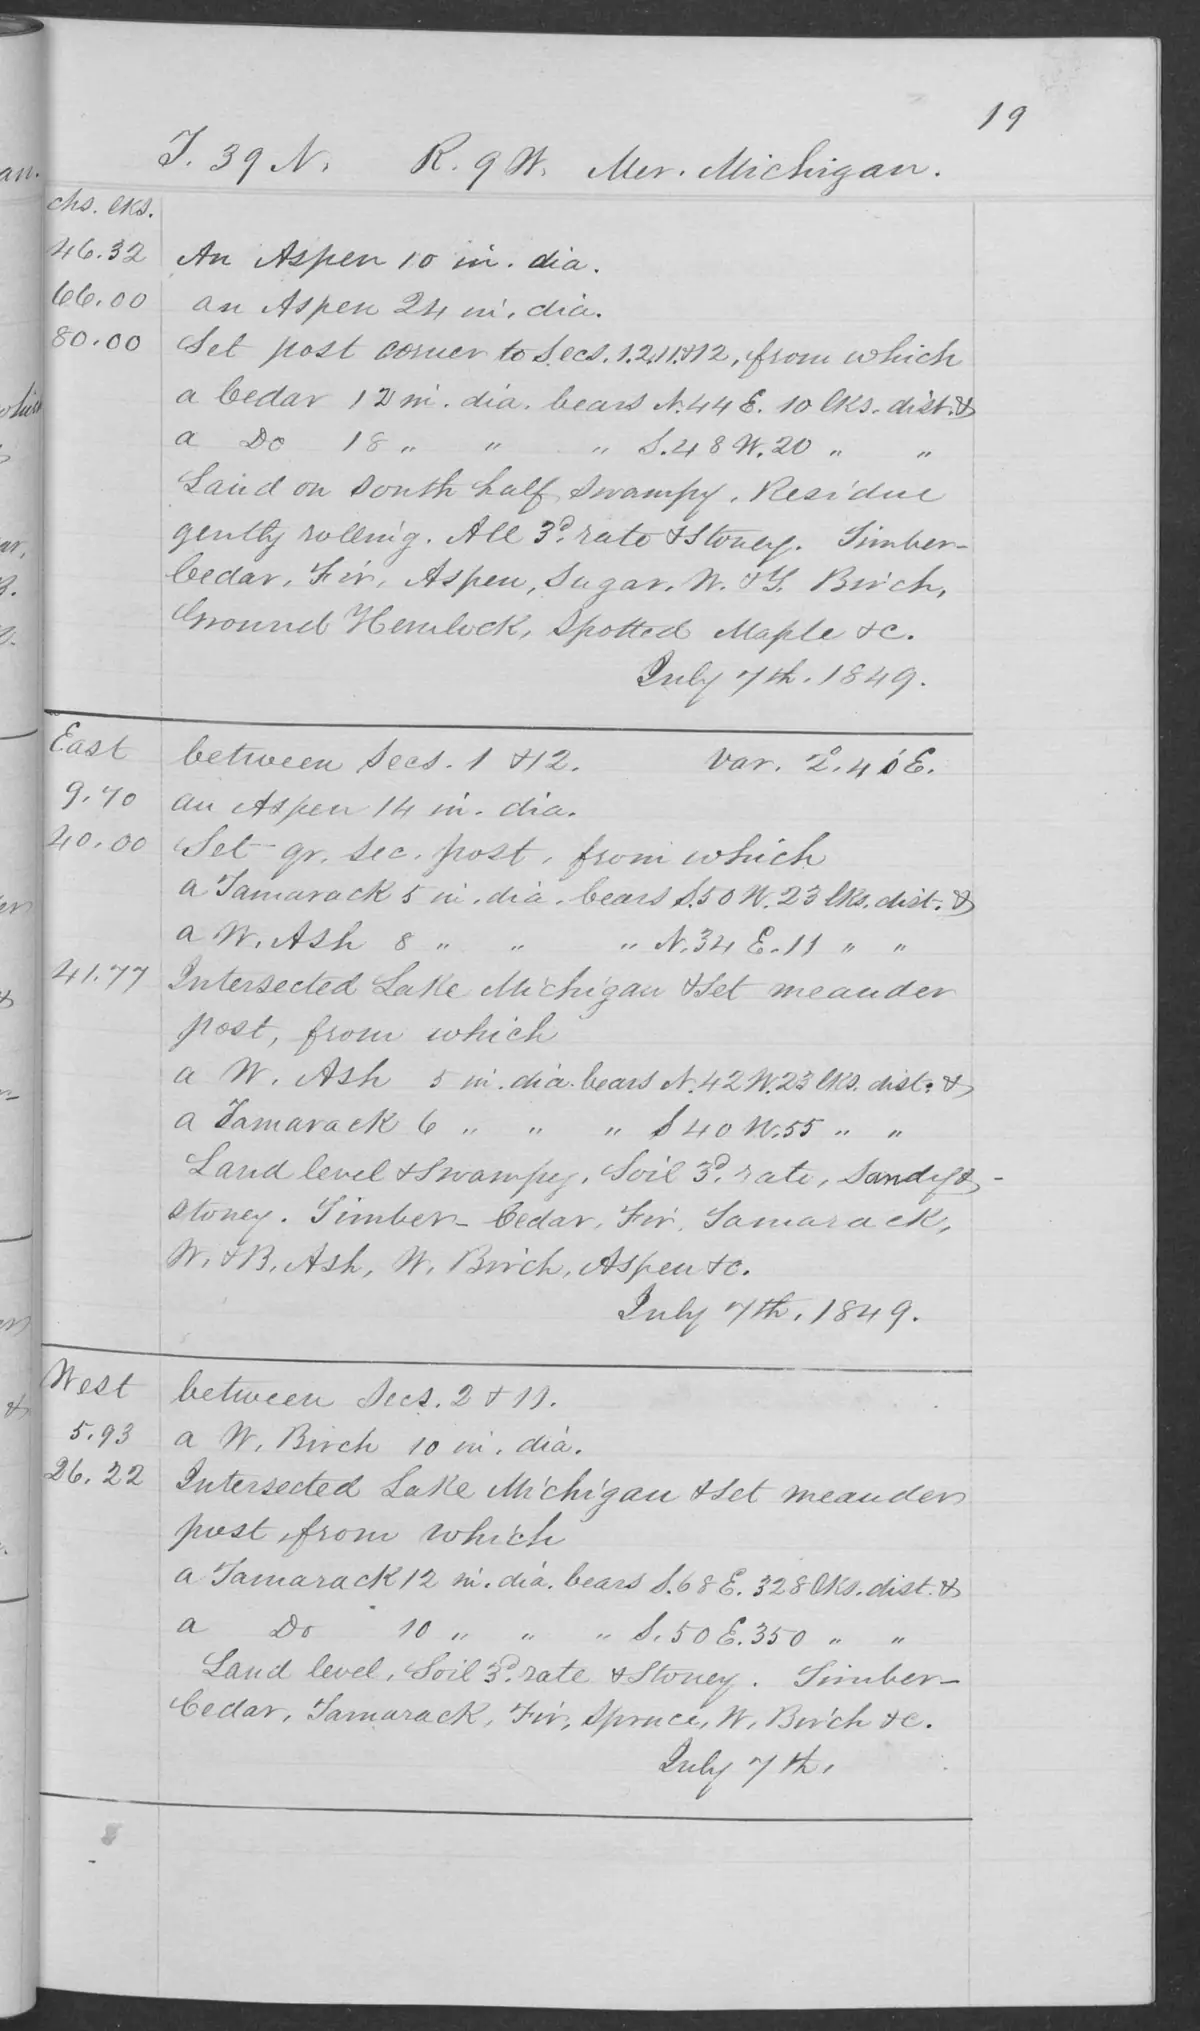 19
T. 39 N. R. 9 W. Mer. Michigan.
chs. lks.
46.32 An Aspen 10 in. dia.
66.00 an Aspen 24 in. dia.
80.00 Set post corner to Secs. 1.2.11.&12, from which
a Cedar 12 in. dia. bears N.44 E. 10 lks. dist. &
a Do 18 " " " S.48 W. 20 " "
Land on South half Swampy. Residue
gently rolling. All 3d. rate & Stoney. Timber-
Cedar, Fir, Aspen, Sugar, W. & Y. Birch,
Ground Hemlock, Spotted Maple &c.
July 7th. 1849.
East between Secs. 1 & 12. Var. 2°. E.
9.70 an Aspen 14 in. dia.
40.00 Set qr. Sec. post, from which
a Tamarack 5 in. dia. bears S.50 W. 23 lks. dist. &
a W. Ash 8 " " " N.34 E. 11 " "
41.77 Intersected Lake Michigan & Set meander
post, from which
a W. Ash 5 in. dia. bears N.42 W. 23 lks. dist. &
a Tamarack 6 " " " S 40 W. 55 " "
Land level & Swampy, Soil 3d. rate, Sandy &
Stoney. Timber- Cedar, Fir, Tamarack,
W. & B. Ash, W. Birch, Aspen &c.
July 7th. 1849.
West between Secs. 2 & 11.
5.93 a W. Birch 10 in. dia.
26.22 Intersected Lake Michigan & Set meander
post, from which
a Tamarack 12 in. dia. bears S.68 E. 328 lks. dist. &
a Do 10 " " " S. 50 E. 350 " "
Land level, Soil 3d. rate & Stoney. Timber-
Cedar, Tamarack, Fir, Spruce, W. Birch &c.
July 7th.